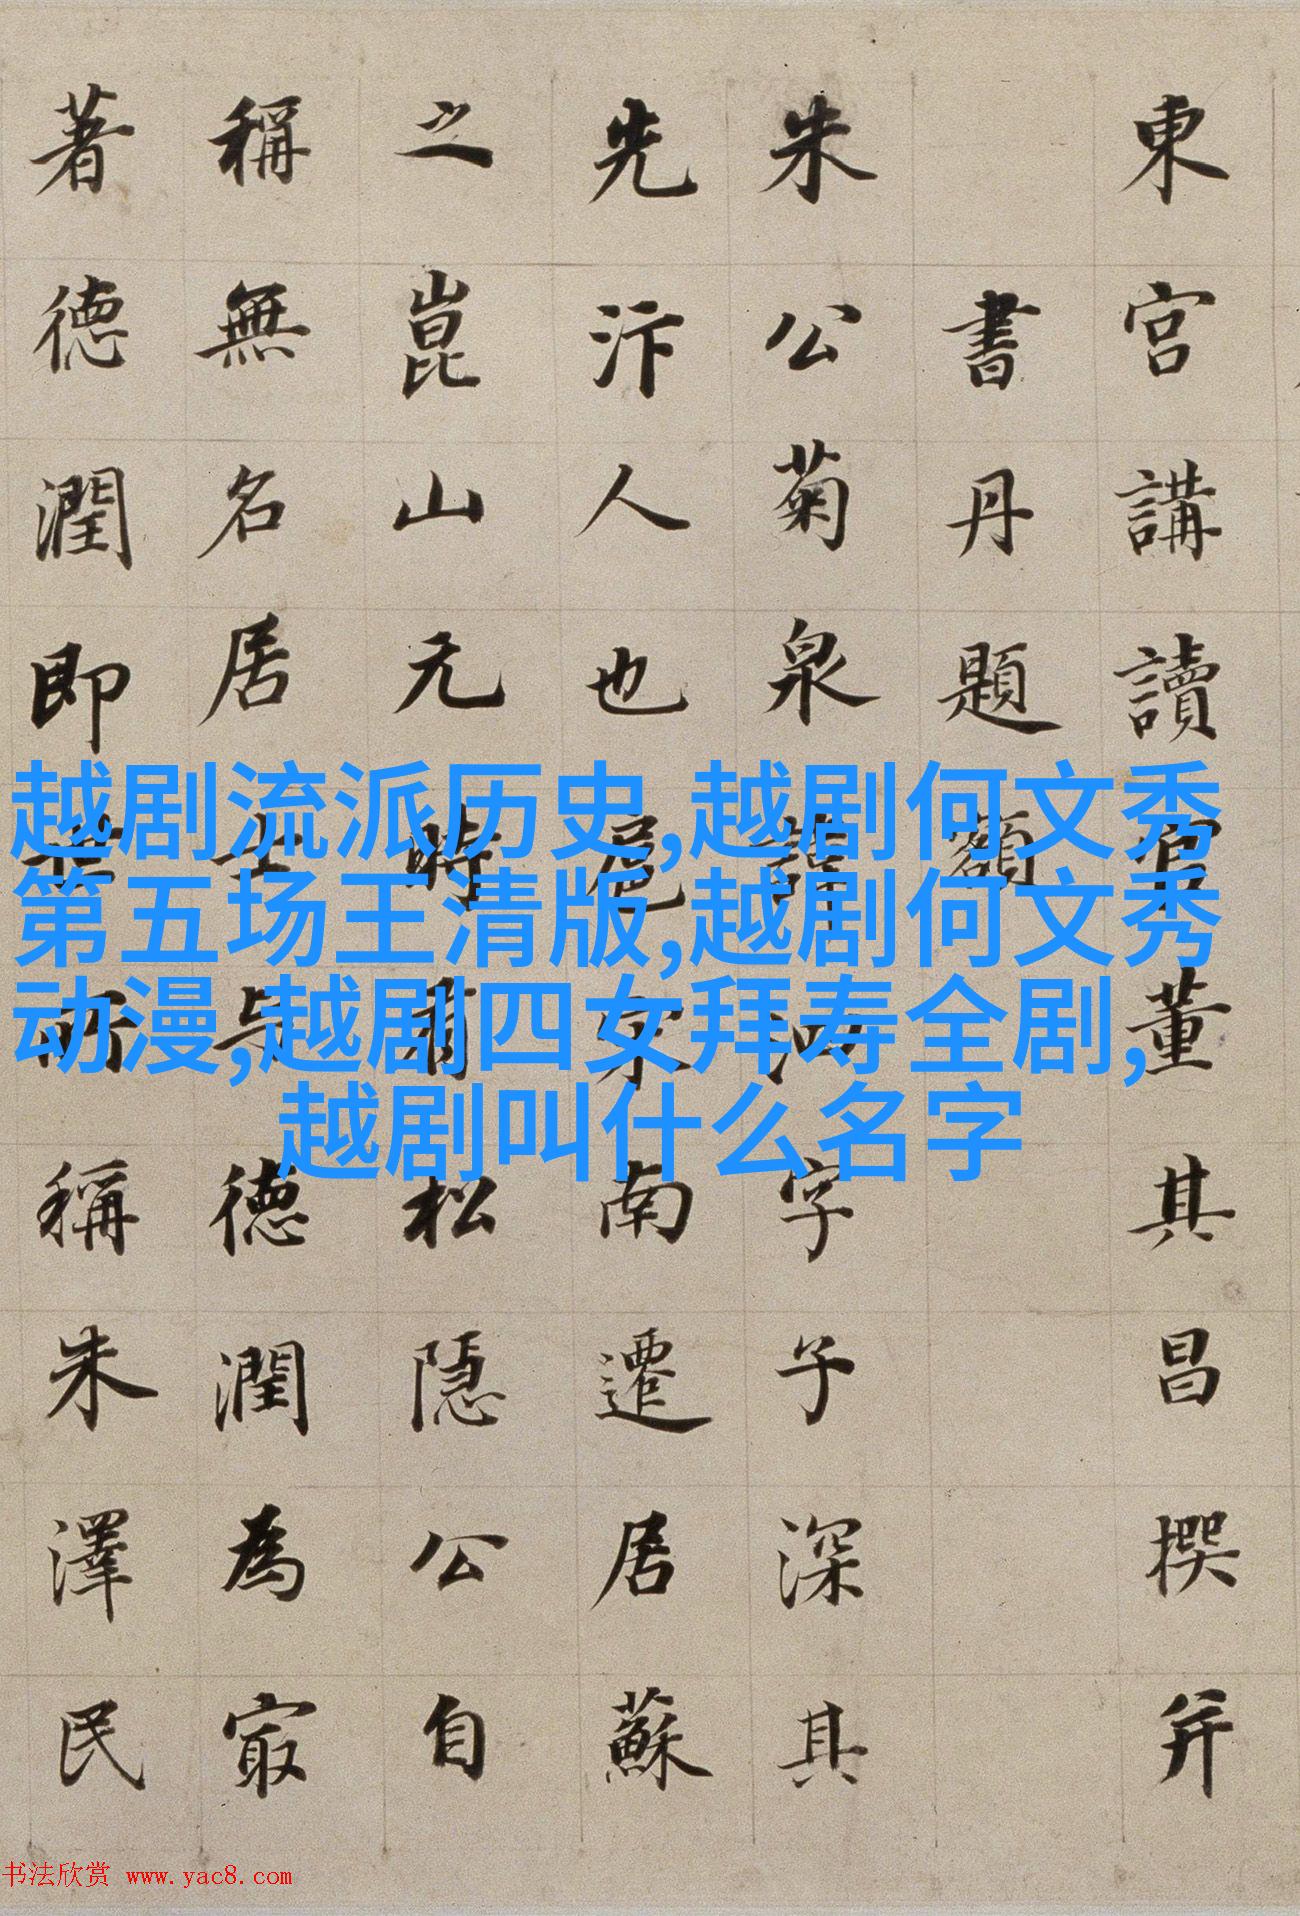 東宮講讀官董其昌撰并
書丹題額
朱公菊泉諱字子深其
先汴人也扈宋南遷居蘇
之崑山元時有松隱公自
稱無名居士與德潤為冣
著德潤即世所稱朱澤民
越剧流派历史,越剧何文秀
第五场王清版,越剧何文秀
动漫,越剧四女拜寿全剧,
越剧叫什么名字
书法欣赏 www.yac8.com